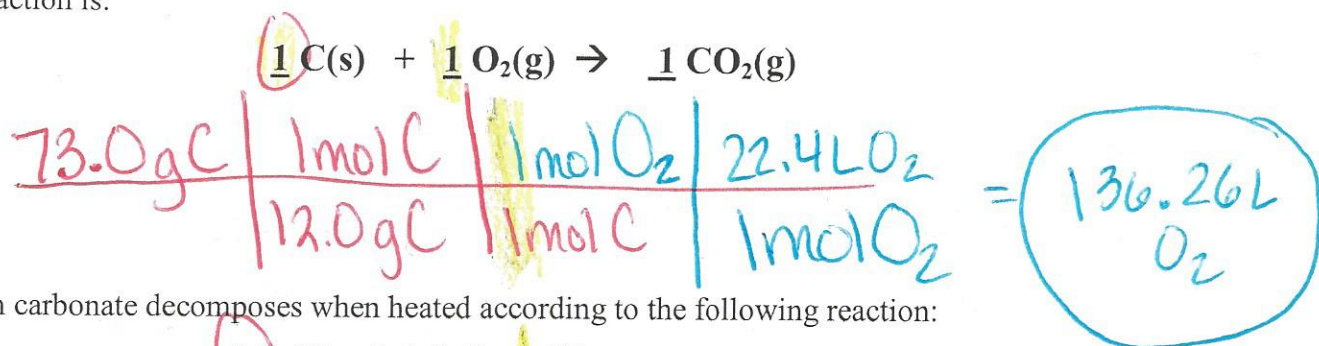 action is:
1 C(s) + 1 O₂(g) → 1 CO₂(g)
73.0gC | 1molC | 1molO₂ | 22.4LO₂ = 136.26L
12.0gC | 1molC | 1molO₂ O₂
n carbonate decomposes when heated according to the following reaction: